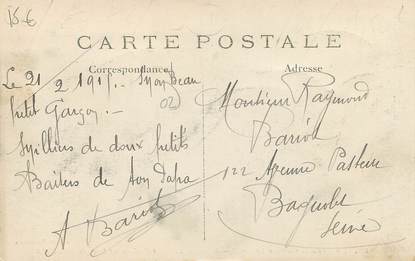 15€
CARTE POSTALE
Correspondance
Adresse
Le 21 2 1915. Mon Beau
petit Garçon.—
Milliers de doux petits
Baisers de ton Papa
A Bariol
Monsieur Raymond
Bariol
122 Avenue Pasteur
Bagnolet
Seine